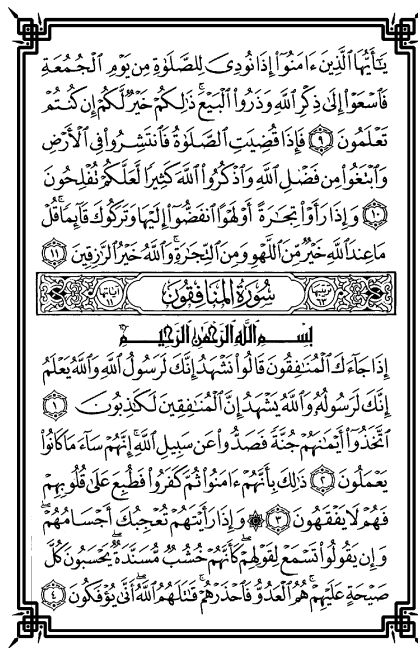 يَٰٓأَيُّهَا ٱلَّذِينَ ءَامَنُوٓا۟ إِذَا نُودِىَ لِلصَّلَوٰةِ مِن يَوْمِ ٱلْجُمُعَةِ
فَٱسْعَوْا۟ إِلَىٰ ذِكْرِ ٱللَّهِ وَذَرُوا۟ ٱلْبَيْعَ ۚ ذَٰلِكُمْ خَيْرٌ لَّكُمْ إِن كُنتُمْ
تَعْلَمُونَ ٩ فَإِذَا قُضِيَتِ ٱلصَّلَوٰةُ فَٱنتَشِرُوا۟ فِى ٱلْأَرْضِ
وَٱبْتَغُوا۟ مِن فَضْلِ ٱللَّهِ وَٱذْكُرُوا۟ ٱللَّهَ كَثِيرًا لَّعَلَّكُمْ تُفْلِحُونَ
١٠ وَإِذَا رَأَوْا۟ تِجَٰرَةً أَوْ لَهْوًا ٱنفَضُّوٓا۟ إِلَيْهَا وَتَرَكُوكَ قَآئِمًا ۚ قُلْ
مَا عِندَ ٱللَّهِ خَيْرٌ مِّنَ ٱللَّهْوِ وَمِنَ ٱلتِّجَٰرَةِ ۚ وَٱللَّهُ خَيْرُ ٱلرَّٰزِقِينَ ١١
سُورَةُ المُنَافِقُونَ
بِسْمِ ٱللَّهِ ٱلرَّحْمَٰنِ ٱلرَّحِيمِ
إِذَا جَآءَكَ ٱلْمُنَٰفِقُونَ قَالُوا۟ نَشْهَدُ إِنَّكَ لَرَسُولُ ٱللَّهِ ۗ وَٱللَّهُ يَعْلَمُ
إِنَّكَ لَرَسُولُهُۥ وَٱللَّهُ يَشْهَدُ إِنَّ ٱلْمُنَٰفِقِينَ لَكَٰذِبُونَ ١
ٱتَّخَذُوٓا۟ أَيْمَٰنَهُمْ جُنَّةً فَصَدُّوا۟ عَن سَبِيلِ ٱللَّهِ ۚ إِنَّهُمْ سَآءَ مَا كَانُوا۟
يَعْمَلُونَ ٢ ذَٰلِكَ بِأَنَّهُمْ ءَامَنُوا۟ ثُمَّ كَفَرُوا۟ فَطُبِعَ عَلَىٰ قُلُوبِهِمْ
فَهُمْ لَا يَفْقَهُونَ ٣ ۞ وَإِذَا رَأَيْتَهُمْ تُعْجِبُكَ أَجْسَامُهُمْ ۖ
وَإِن يَقُولُوا۟ تَسْمَعْ لِقَوْلِهِمْ ۖ كَأَنَّهُمْ خُشُبٌ مُّسَنَّدَةٌ ۖ يَحْسَبُونَ كُلَّ
صَيْحَةٍ عَلَيْهِمْ ۚ هُمُ ٱلْعَدُوُّ فَٱحْذَرْهُمْ ۚ قَٰتَلَهُمُ ٱللَّهُ ۖ أَنَّىٰ يُؤْفَكُونَ ٤